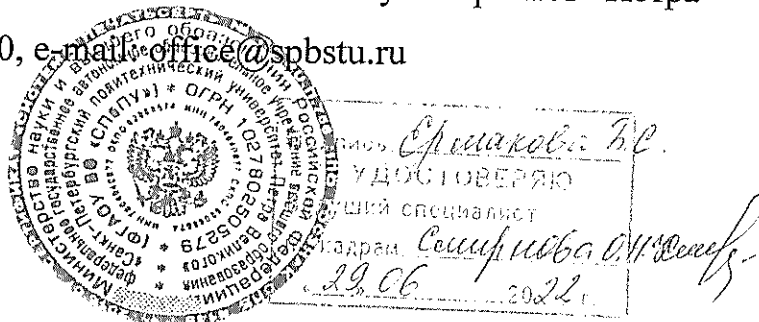 0, e-mail: office@spbstu.ru
Министерство науки и высшего образования Российской Федерации
федеральное государственное автономное образовательное учреждение высшего образования
«Санкт-Петербургский политехнический университет Петра Великого»
(ФГАОУ ВО «СПбПУ») * ОГРН 1027802505279 *
Ермакова Б.С.
УДОСТОВЕРЯЮ
специалист
кадрам Смирнова О.Н.
«29» 06 2022 г.